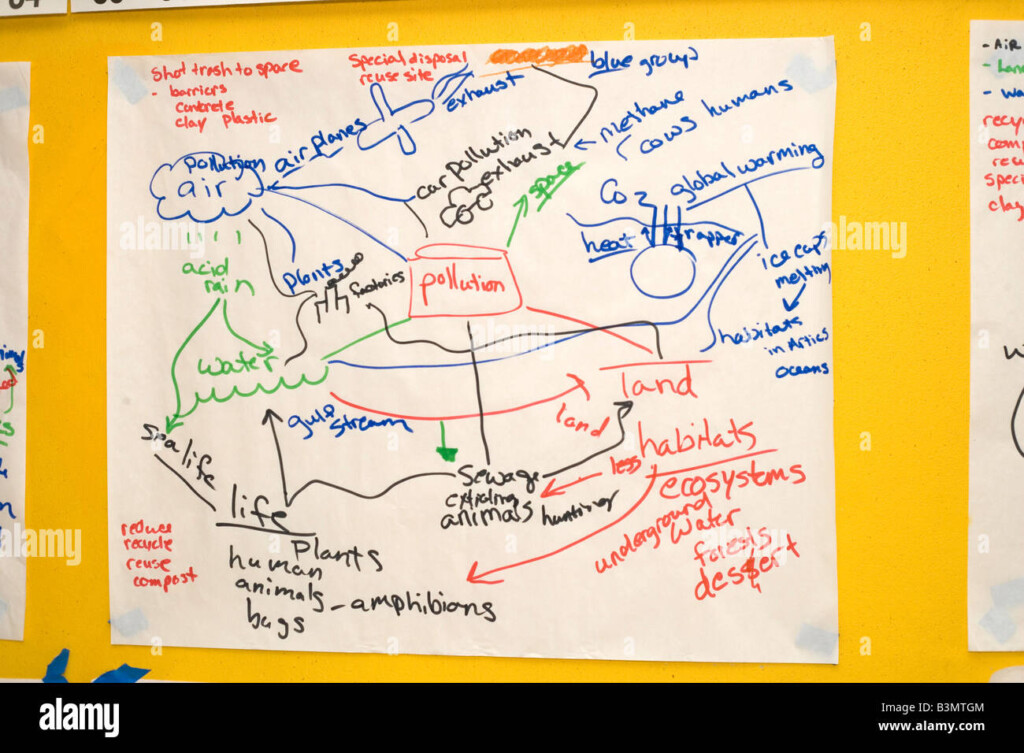 Shot trash to space
- barriers
concrete
clay plastic
Special disposal
reuse site
blue group
exhaust
air planes
pollution
air
car pollution
exhaust
methane
cows humans
space
CO2
global warming
heat trapper
ice caps
melting
habitats
in Artics
oceans
acid
rain
plants
factories
pollution
water
land
gulf
stream
land
sea life
life
Plants
human
animals - amphibians
bags
reduce
recycle
reuse
compost
Sewage
animals
hunting
less
habitats
ecosystems
underground
water
forests
dessert
- Air
alamy
Image ID: B3MTGM
www.alamy.com